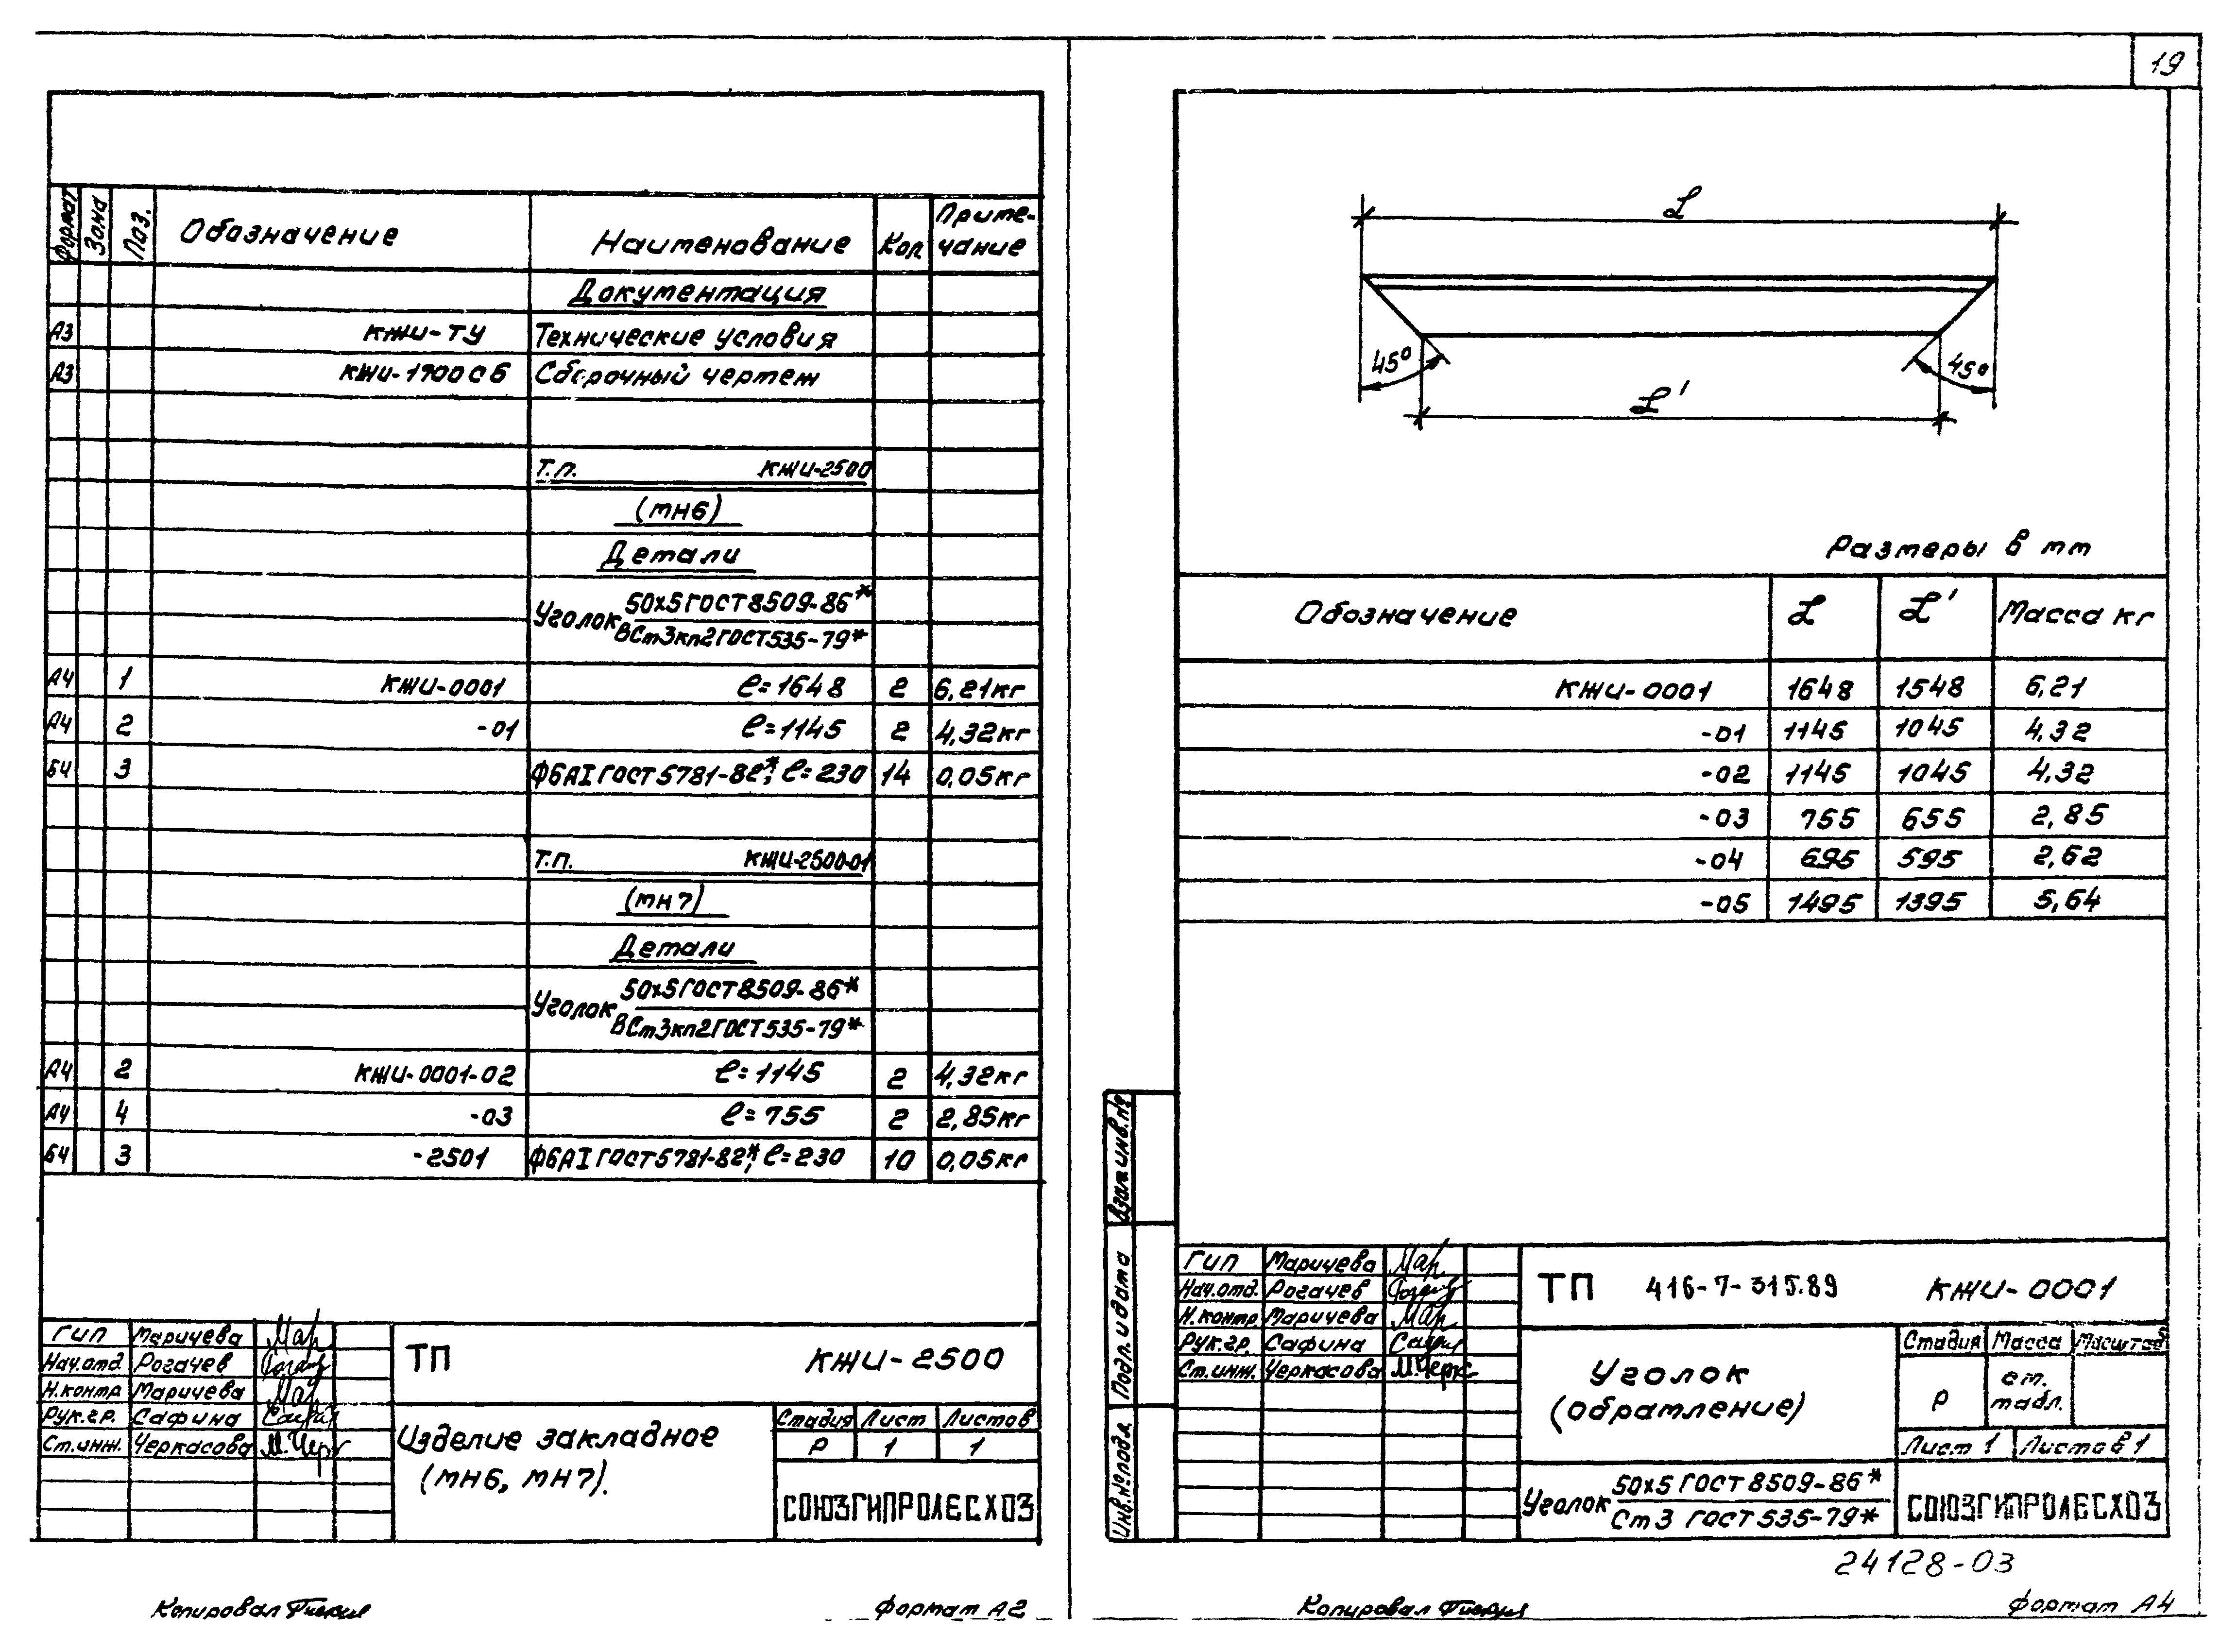 19
Формат Зона Поз. Обозначение Наименование Кол Приме-чание
Документация
А3 КЖИ-ТУ Технические условия
А3 КЖИ-1900СБ Сборочный чертеж
Т.п. КЖИ-2500
(МН6)
Детали
Уголок 50х5 ГОСТ 8509-86*
ВСт3кп2 ГОСТ 535-79*
А4 1 КЖИ-0001 ℓ=1648 2 6,21кг
А4 2 -01 ℓ=1145 2 4,32кг
БЧ 3 Ф6АI ГОСТ 5781-82*; ℓ=230 14 0,05кг
Т.п. КЖИ-2500-01
(МН7)
Детали
Уголок 50х5 ГОСТ 8509-86*
ВСт3кп2 ГОСТ 535-79*
А4 2 КЖИ-0001-02 ℓ=1145 2 4,32кг
А4 4 -03 ℓ=755 2 2,85кг
БЧ 3 -2501 Ф6АI ГОСТ 5781-82*; ℓ=230 10 0,05кг
ГИП Маричева Мар
Нач.отд. Рогачев
Н.контр Маричева Мар
Рук.гр. Сафина
Ст.инж. Черкасова М.Черк
ТП КЖИ-2500
Изделие закладное
(МН6, МН7).
Стадия Лист Листов
Р 1 1
СОЮЗГИПРОЛЕСХОЗ
Копировал
Формат А2
L
45° 45°
L'
Размеры в мм
Обозначение L L' Масса кг
КЖИ-0001 1648 1548 6,21
-01 1145 1045 4,32
-02 1145 1045 4,32
-03 755 655 2,85
-04 695 595 2,62
-05 1495 1395 5,64
Взам.инв.№
Подп. и дата
Инв.№ подл.
ГИП Маричева Мар
Нач.отд. Рогачев
Н.контр. Маричева Мар
Рук.гр. Сафина
Ст.инж. Черкасова М.Черк
ТП 416-7-315.89 КЖИ-0001
Уголок
(обрамление)
Стадия Масса Масштаб
Р см. табл.
Лист 1 Листов 1
Уголок 50х5 ГОСТ 8509-86*
Ст3 ГОСТ 535-79*
СОЮЗГИПРОЛЕСХОЗ
24128-03
Копировал
Формат А4